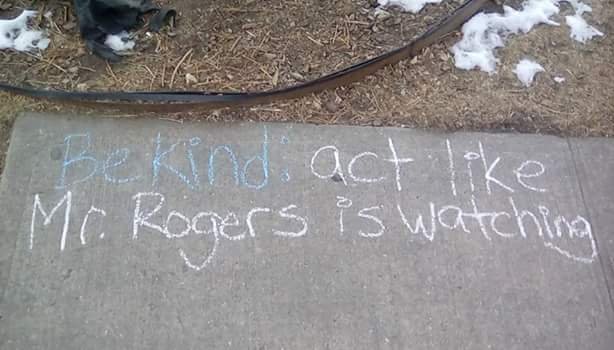 Be kind: act like
Mr. Rogers is watching